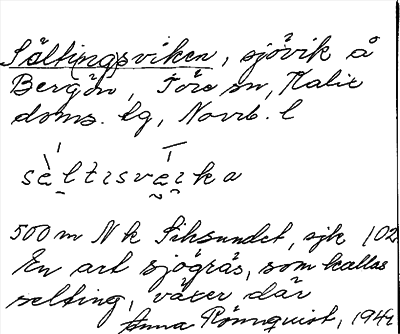 Sältingsviken, sjövik å
Bergön, Töre sn, Kalix
doms. lg, Norrb. l
sèltısvèıka
500 m N k Siksundet, sjk 102
En art sjögräs, som kallas
selting, växer där
Anna Rönnquist, 1942